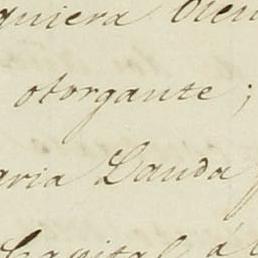 quiera bien
otorgante;
aria Landa
Capital á